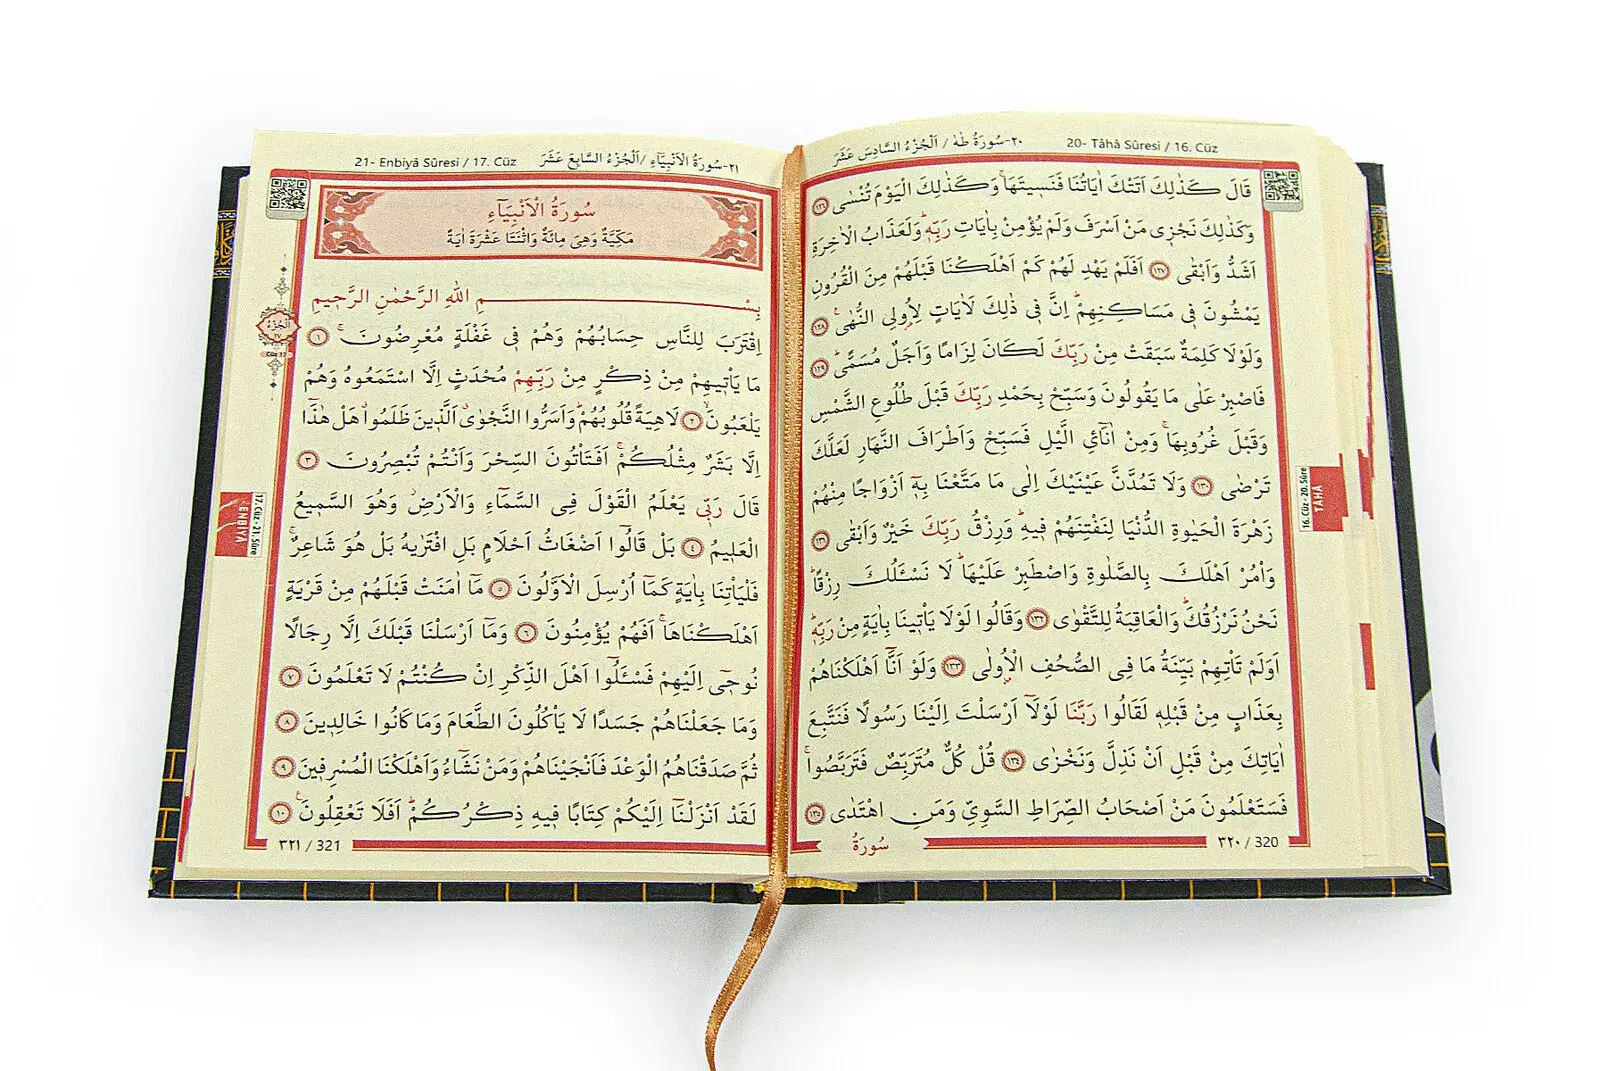 ٢٠-سُورَةُ طٰهٰ / اَلْجُزْءُ السَّادِسَ عَشَرَ 20- Tâhâ Sûresi / 16. Cüz
قَالَ كَذٰلِكَ اَتَتْكَ اٰيَاتُنَا فَنَسِيتَهَاۚ وَكَذٰلِكَ الْيَوْمَ تُنْسٰى ﴿١٢٦﴾
وَكَذٰلِكَ نَجْزِي مَنْ اَسْرَفَ وَلَمْ يُؤْمِنْ بِاٰيَاتِ رَبِّهٖۜ وَلَعَذَابُ الْاٰخِرَةِ
اَشَدُّ وَاَبْقٰى ﴿١٢٧﴾ اَفَلَمْ يَهْدِ لَهُمْ كَمْ اَهْلَكْنَا قَبْلَهُمْ مِنَ الْقُرُونِ
يَمْشُونَ فٖي مَسَاكِنِهِمْۜ اِنَّ فٖي ذٰلِكَ لَاٰيَاتٍ لِاُو۬لِي النُّهٰىۚ ﴿١٢٨﴾
وَلَوْلَا كَلِمَةٌ سَبَقَتْ مِنْ رَبِّكَ لَكَانَ لِزَامًا وَاَجَلٌ مُسَمًّىۜ ﴿١٢٩﴾
فَاصْبِرْ عَلٰى مَا يَقُولُونَ وَسَبِّحْ بِحَمْدِ رَبِّكَ قَبْلَ طُلُوعِ الشَّمْسِ
وَقَبْلَ غُرُوبِهَاۚ وَمِنْ اٰنَآئِ الَّيْلِ فَسَبِّحْ وَاَطْرَافَ النَّهَارِ لَعَلَّكَ
تَرْضٰى ﴿١٣٠﴾ وَلَا تَمُدَّنَّ عَيْنَيْكَ اِلٰى مَا مَتَّعْنَا بِهٖٓ اَزْوَاجًا مِنْهُمْ
زَهْرَةَ الْحَيٰوةِ الدُّنْيَا لِنَفْتِنَهُمْ فٖيهِۜ وَرِزْقُ رَبِّكَ خَيْرٌ وَاَبْقٰى ﴿١٣١﴾
وَأْمُرْ اَهْلَكَ بِالصَّلٰوةِ وَاصْطَبِرْ عَلَيْهَاۜ لَا نَسْـَٔلُكَ رِزْقًاۜ
نَحْنُ نَرْزُقُكَۜ وَالْعَاقِبَةُ لِلتَّقْوٰى ﴿١٣٢﴾ وَقَالُوا لَوْلَا يَأْتٖينَا بِاٰيَةٍ مِنْ رَبِّهٖۜ
اَوَلَمْ تَأْتِهِمْ بَيِّنَةُ مَا فِي الصُّحُفِ الْاُو۫لٰى ﴿١٣٣﴾ وَلَوْ اَنَّٓا اَهْلَكْنَاهُمْ
بِعَذَابٍ مِنْ قَبْلِهٖ لَقَالُوا رَبَّنَا لَوْلَٓا اَرْسَلْتَ اِلَيْنَا رَسُولًا فَنَتَّبِعَ
اٰيَاتِكَ مِنْ قَبْلِ اَنْ نَذِلَّ وَنَخْزٰى ﴿١٣٤﴾ قُلْ كُلٌّ مُتَرَبِّصٌ فَتَرَبَّصُواۚ
فَسَتَعْلَمُونَ مَنْ اَصْحَابُ الصِّرَاطِ السَّوِيِّ وَمَنِ اهْتَدٰى ﴿١٣٥﴾
٣٢٠ / 320
سُورَةُ
16. Cüz - 20. Sûre
TÂHÂ
٢١-سُورَةُ الْاَنْبِيَٓاءِ / اَلْجُزْءُ السَّابِعَ عَشَرَ 21- Enbiyâ Sûresi / 17. Cüz
سُورَةُ الْاَنْبِيَٓاءِ
مَكِّيَّةٌ وَهِيَ مِائَةٌ وَاثْنَتَا عَشْرَةَ اٰيَةً
بِسْمِ اللّٰهِ الرَّحْمٰنِ الرَّحٖيمِ
اِقْتَرَبَ لِلنَّاسِ حِسَابُهُمْ وَهُمْ فٖي غَفْلَةٍ مُعْرِضُونَۚ ﴿١﴾
مَا يَأْتٖيهِمْ مِنْ ذِكْرٍ مِنْ رَبِّهِمْ مُحْدَثٍ اِلَّا اسْتَمَعُوهُ وَهُمْ
يَلْعَبُونَۙ ﴿٢﴾ لَاهِيَةً قُلُوبُهُمْۜ وَاَسَرُّوا النَّجْوٰىۗ اَلَّذٖينَ ظَلَمُواۗ هَلْ هٰذَٓا
اِلَّا بَشَرٌ مِثْلُكُمْۚ اَفَتَأْتُونَ السِّحْرَ وَاَنْتُمْ تُبْصِرُونَ ﴿٣﴾
قَالَ رَبّٖي يَعْلَمُ الْقَوْلَ فِي السَّمَٓاءِ وَالْاَرْضِۘ وَهُوَ السَّمٖيعُ
الْعَلٖيمُ ﴿٤﴾ بَلْ قَالُٓوا اَضْغَاثُ اَحْلَامٍ بَلِ افْتَرٰيهُ بَلْ هُوَ شَاعِرٌۚ
فَلْيَأْتِنَا بِاٰيَةٍ كَمَٓا اُرْسِلَ الْاَوَّلُونَ ﴿٥﴾ مَٓا اٰمَنَتْ قَبْلَهُمْ مِنْ قَرْيَةٍ
اَهْلَكْنَاهَاۚ اَفَهُمْ يُؤْمِنُونَ ﴿٦﴾ وَمَٓا اَرْسَلْنَا قَبْلَكَ اِلَّا رِجَالًا
نُوحٖٓي اِلَيْهِمْ فَسْـَٔلُٓوا اَهْلَ الذِّكْرِ اِنْ كُنْتُمْ لَا تَعْلَمُونَ ﴿٧﴾
وَمَا جَعَلْنَاهُمْ جَسَدًا لَا يَأْكُلُونَ الطَّعَامَ وَمَا كَانُوا خَالِدٖينَ ﴿٨﴾
ثُمَّ صَدَقْنَاهُمُ الْوَعْدَ فَاَنْجَيْنَاهُمْ وَمَنْ نَشَٓاءُ وَاَهْلَكْنَا الْمُسْرِفٖينَ ﴿٩﴾
لَقَدْ اَنْزَلْنَٓا اِلَيْكُمْ كِتَابًا فٖيهِ ذِكْرُكُمْۜ اَفَلَا تَعْقِلُونَۚ ﴿١٠﴾
٣٢١ / 321
اَلْجُزْءُ
١٧
Cüz 17
17. Cüz - 21. Sûre
ENBİYÂ